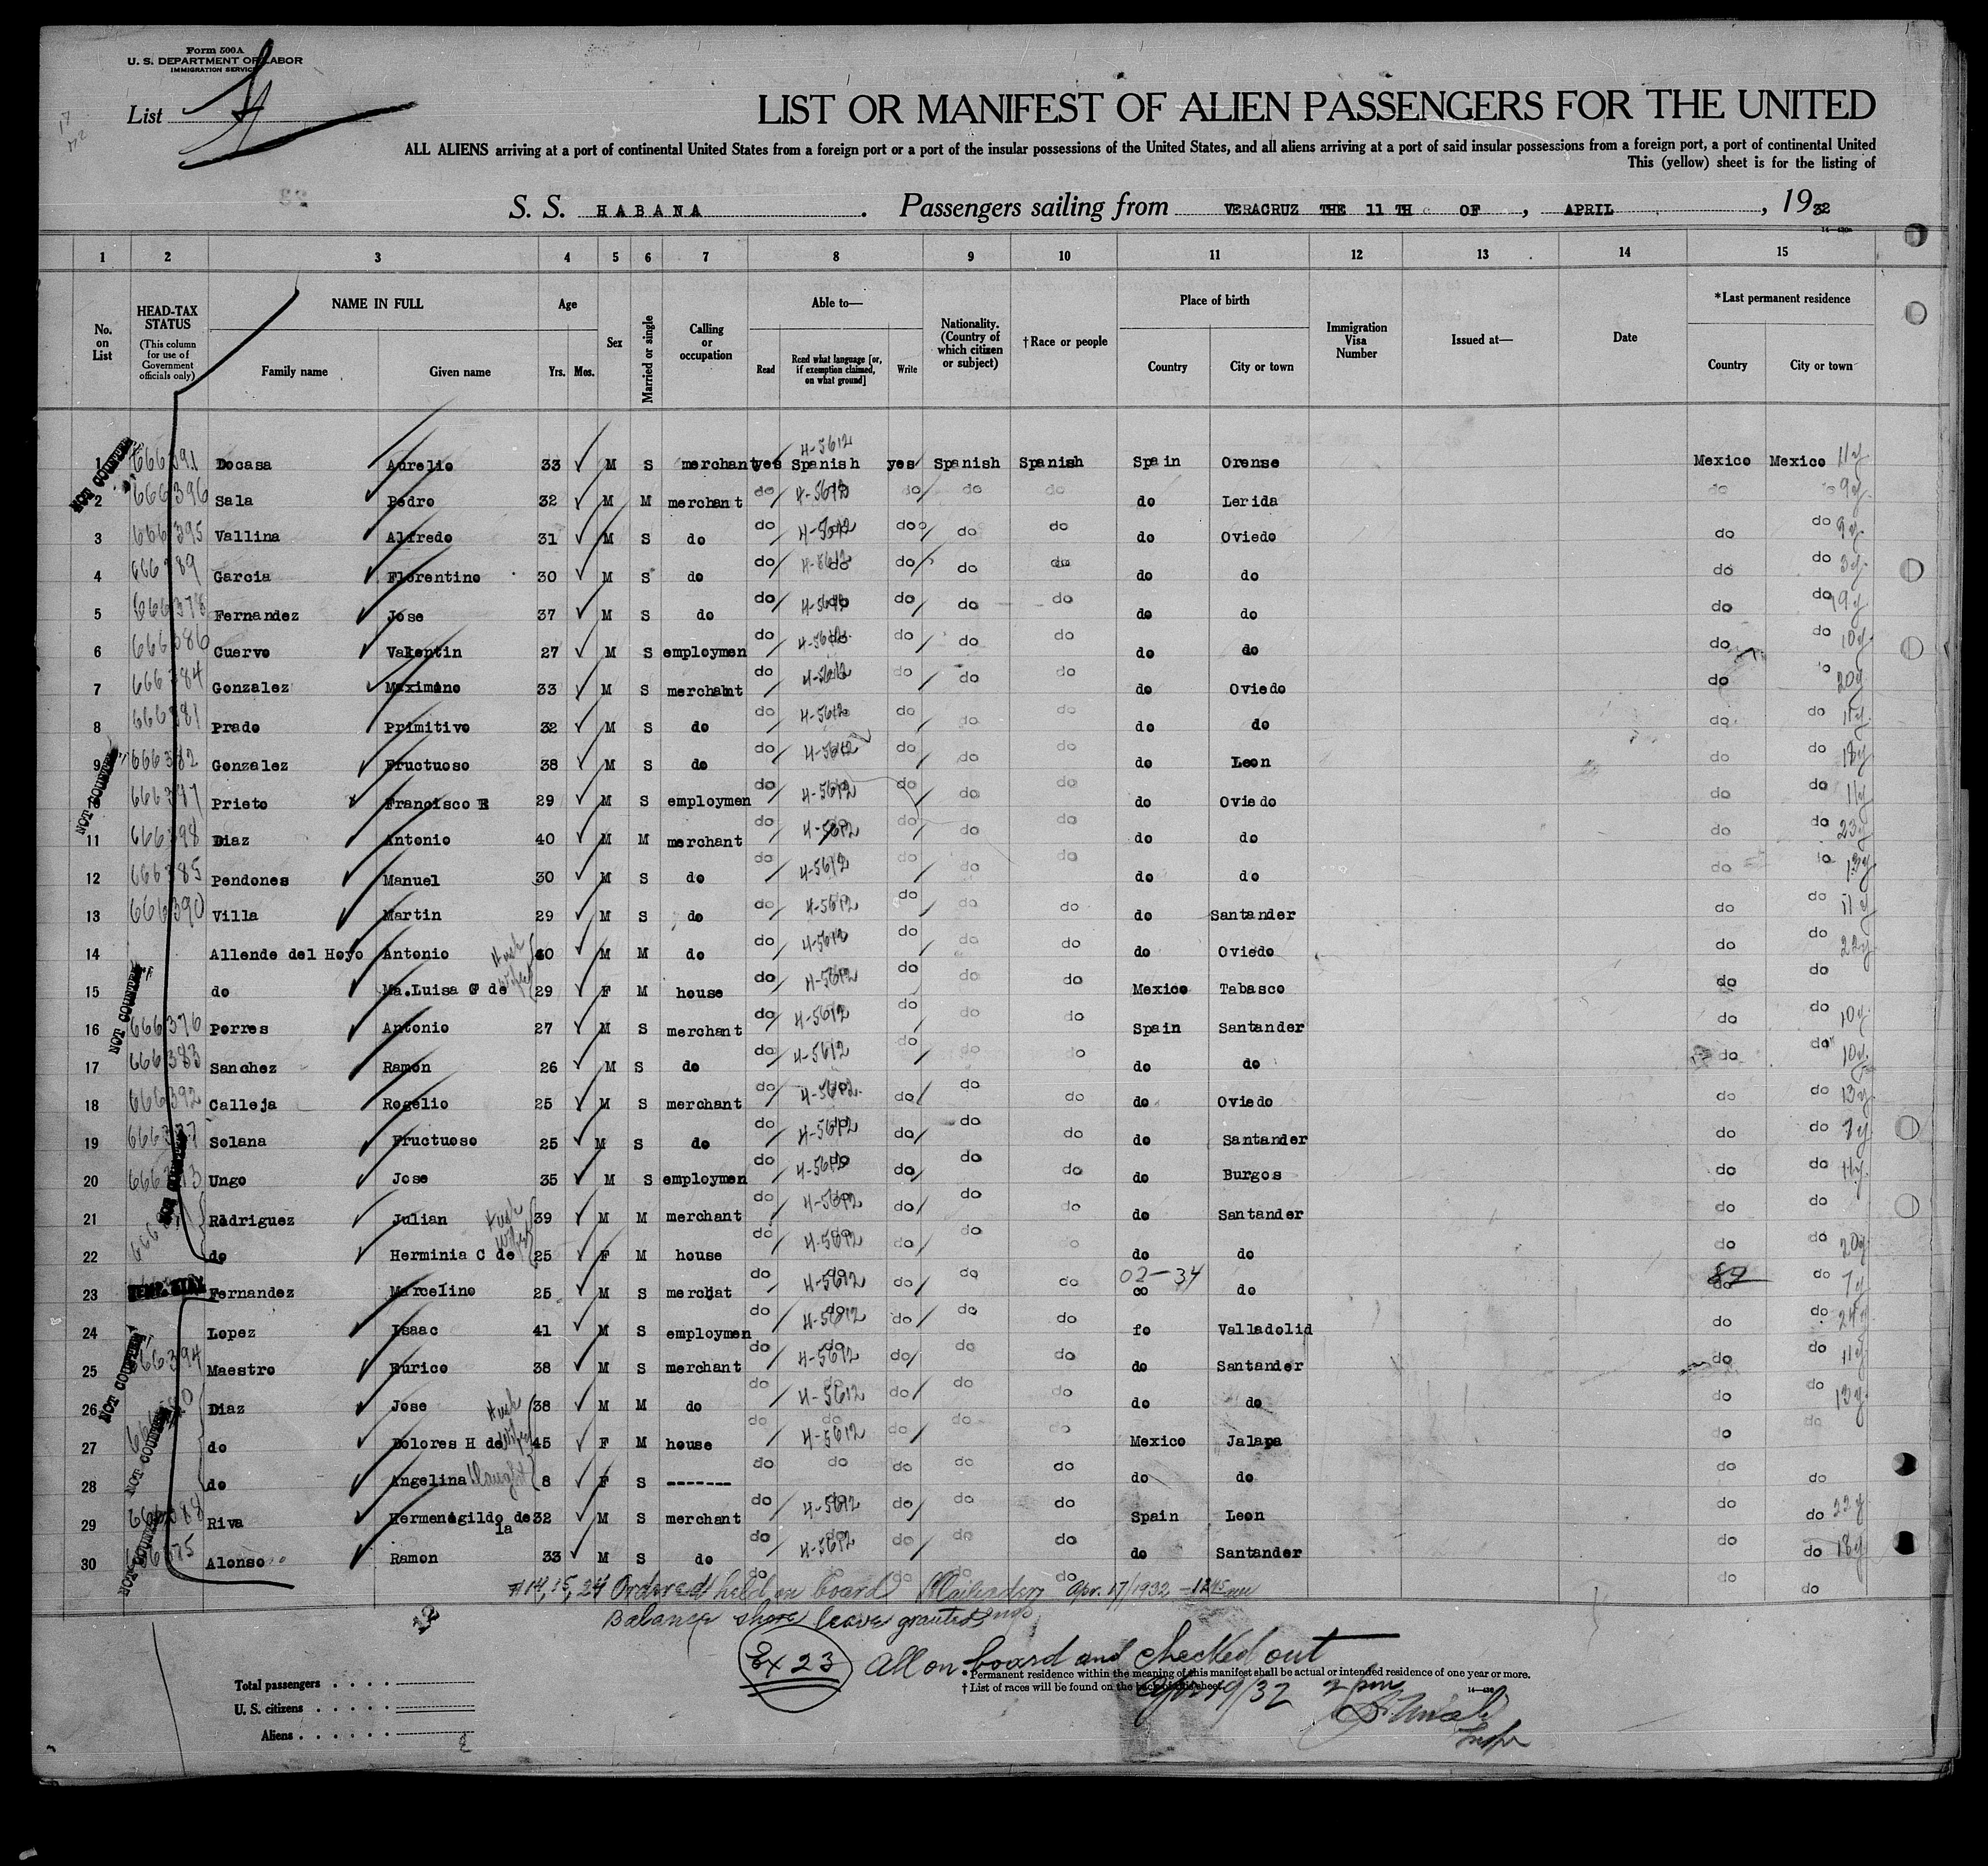 Form 500A
U. S. DEPARTMENT OF LABOR
IMMIGRATION SERVICE
List
LIST OR MANIFEST OF ALIEN PASSENGERS FOR THE UNITED
ALL ALIENS arriving at a port of continental United States from a foreign port or a port of the insular possessions of the United States, and all aliens arriving at a port of said insular possessions from a foreign port, a port of continental United
This (yellow) sheet is for the listing of
S. S. HABANA . Passengers sailing from VERACRUZ THE 11 TH OF , APRIL , 1932
1 2 3 4 5 6 7 8 9 10 11 12 13 14 15
No. on List
HEAD-TAX STATUS
(This column for use of Government officials only)
NAME IN FULL
Family name Given name
Age
Yrs. Mos.
Sex
Married or single
Calling or occupation
Able to—
Read Read what language [or, if exemption claimed, on what ground] Write
Nationality. (Country of which citizen or subject)
†Race or people
Place of birth
Country City or town
Immigration Visa Number
Issued at—
Date
*Last permanent residence
Country City or town
1 Docasa Aurelio 33 M S merchant yes Spanish 4-5612 yes Spanish Spanish Spain Orense Mexico Mexico 11y
2 666396 Sala Pedro 32 M M merchant do 4-5612 do do do do Lerida do do 9y
3 666395 Vallina Alfredo 31 M S do do 4-5612 do do do do Oviedo do do 9y
4 Garcia Florentino 30 M S do do 4-5612 do do do do do do do 3y
5 666378 Fernandez Jose 37 M S do do 4-5612 do do do do do do do 19y
6 666386 Cuervo Valentin 27 M S employmen do 4-5612 do do do do do do do 10y
7 666384 Gonzalez Maximino 33 M S merchant do 4-5612 do do do do Oviedo do 20y
8 666381 Prado Primitivo 32 M S do do 4-5612 do do do do do do do 11y
9 666382 Gonzalez Fructuoso 38 M S do do 4-5612 do do do do Leon do do 18y
Prieto Francisco R 29 M S employmen do 4-5612 do do do do Oviedo do do 11y
11 666398 Diaz Antonio 40 M M merchant do 4-5612 do do do do do do do 23y
12 666385 Pendones Manuel 30 M S do do 4-5612 do do do do do do do 13y
13 666390 Villa Martin 29 M S do do 4-5612 do do do do Santander do do 11y
14 Allende del Hoyo Antonio Husb 40 M M do do 4-5612 do do do do Oviedo do do 22y
15 do Ma.Luisa G de Wife 29 F M house do 4-5612 do do do Mexico Tabasco do do
16 666376 Porres Antonio 27 M S merchant do 4-5612 do do do Spain Santander do do 10y
17 666383 Sanchez Ramon 26 M S do do 4-5612 do do do do do do do 10y
18 666392 Calleja Rogelio 25 M S merchant do 4-5612 do do do do Oviedo do do 13y
19 Solana Fructuoso 25 M S do do 4-5612 do do do do Santander do do 7y
20 Ungo Jose 35 M S employmen do 4-5612 do do do do Burgos do do 11y
21 Rodriguez Julian Husb 39 M M merchant do 4-5612 do do do do Santander do do
22 do Herminia C de Wife 25 F M house do 4-5612 do do do do do do do 20y
23 Fernandez Marcelino 25 M S merchat do 4-5612 do do do 02-34 do do do 7y
24 Lopez Isaac 41 M S employmen do 4-5612 do do do fo Valladolid do do 24y
25 Maestro Eurico 38 M S merchant do 4-5612 do do do do Santander do do 11y
26 Diaz Jose Husb 38 M M do do 4-5612 do do do do do do do 13y
27 do Dolores H de Wife 45 F M house do 4-5612 do do do Mexico Jalapa do do
28 do Angelina Daught 8 F S ------- do do do do do do do do do
29 Riva Hermenigildo de la 32 M S merchant do 4-5612 do do do Spain Leon do do 22y
30 Alonso Ramon 33 M S do do 4-5612 do do do do Santander do do 18y
NOT COUNTED
#14, 15, 24 Ordered held on board Apr. 17/1932
Balance shore leave granted
Ex 23 All on board and checked out
*Permanent residence within the meaning of this manifest shall be actual or intended residence of one year or more.
†List of races will be found on the back of this sheet.
2 pm
Insp
Total passengers
U. S. citizens
Aliens